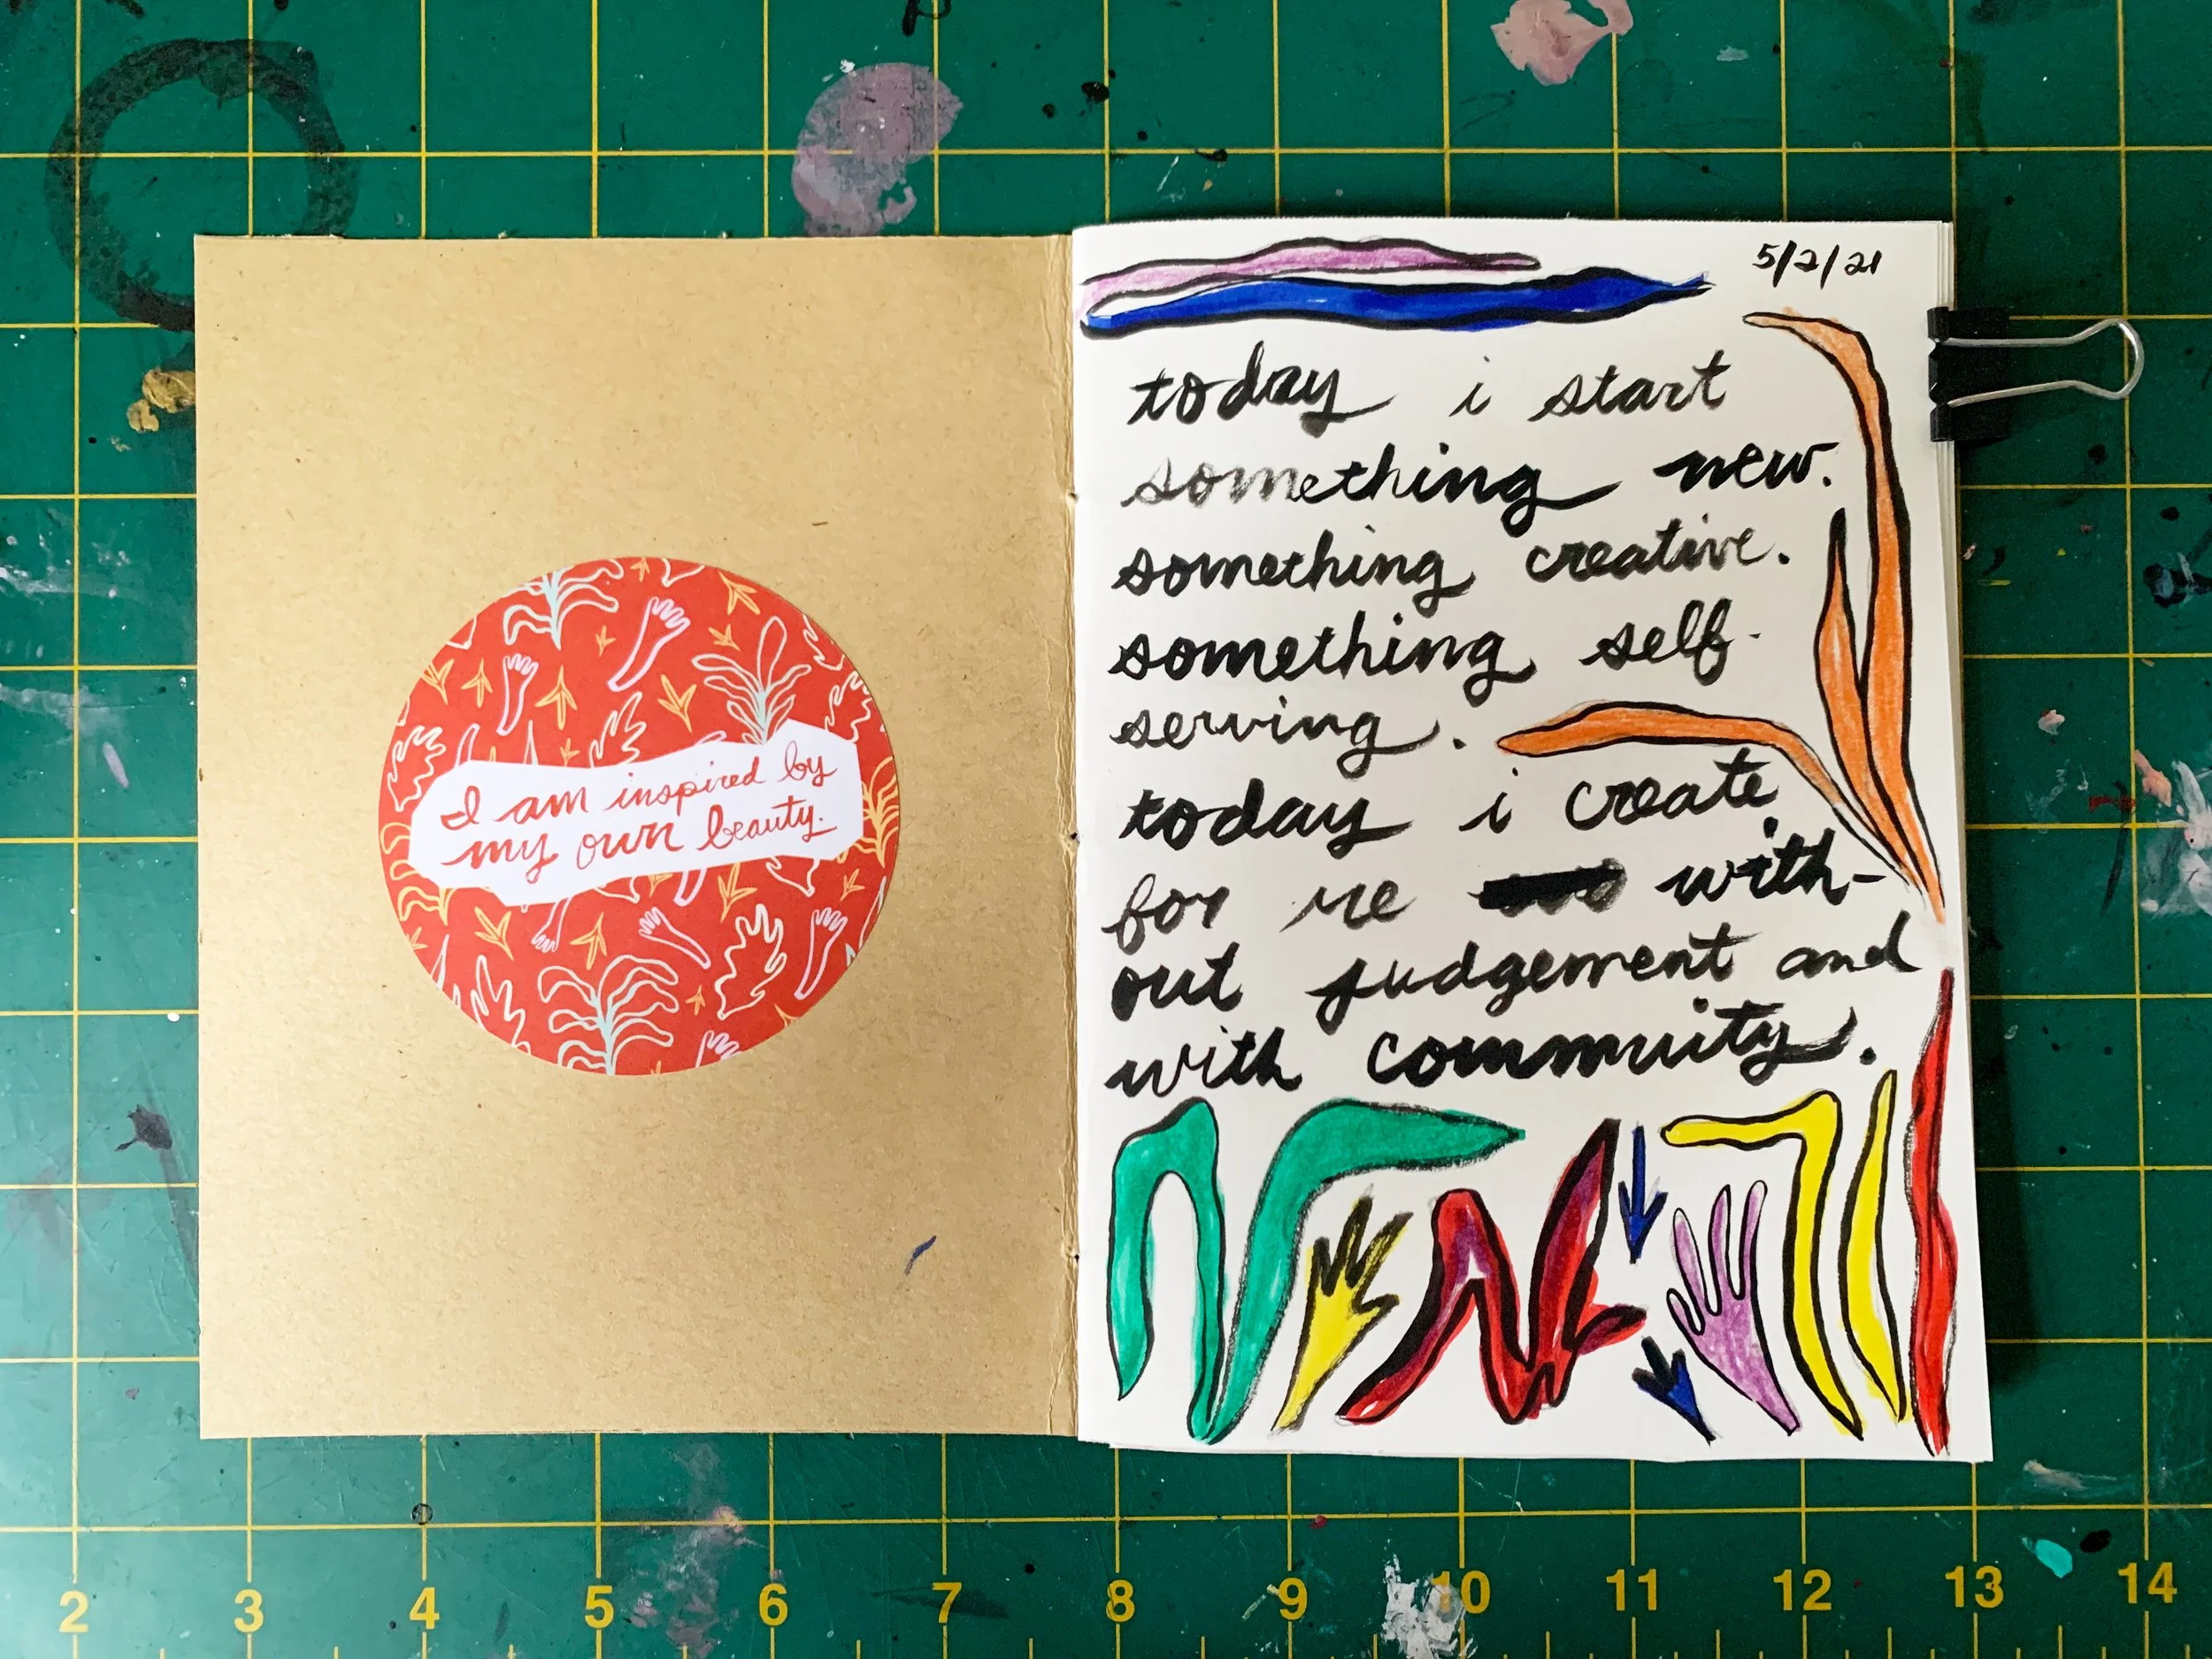 I am inspired by
my own beauty.
5/2/21
today i start
something new.
something creative.
something self-
serving.
today i create
for me with-
out judgement and
with commuity.
2 3 4 5 6 7 8 9 10 11 12 13 14